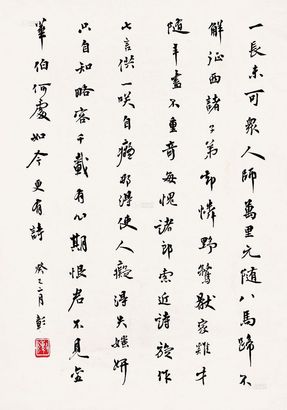 一長未可衆人師萬里元隨八馬蹄不
解征西諸子弟却憐野鶩厭家雞才
隨年盡不重奇每愧諸郎索近詩旋作
七言供一咲自癡那得使人癡得失嫫妍
只自知略容千載有心期恨君不見金
華伯何處如今更有詩 癸巳二月 彭